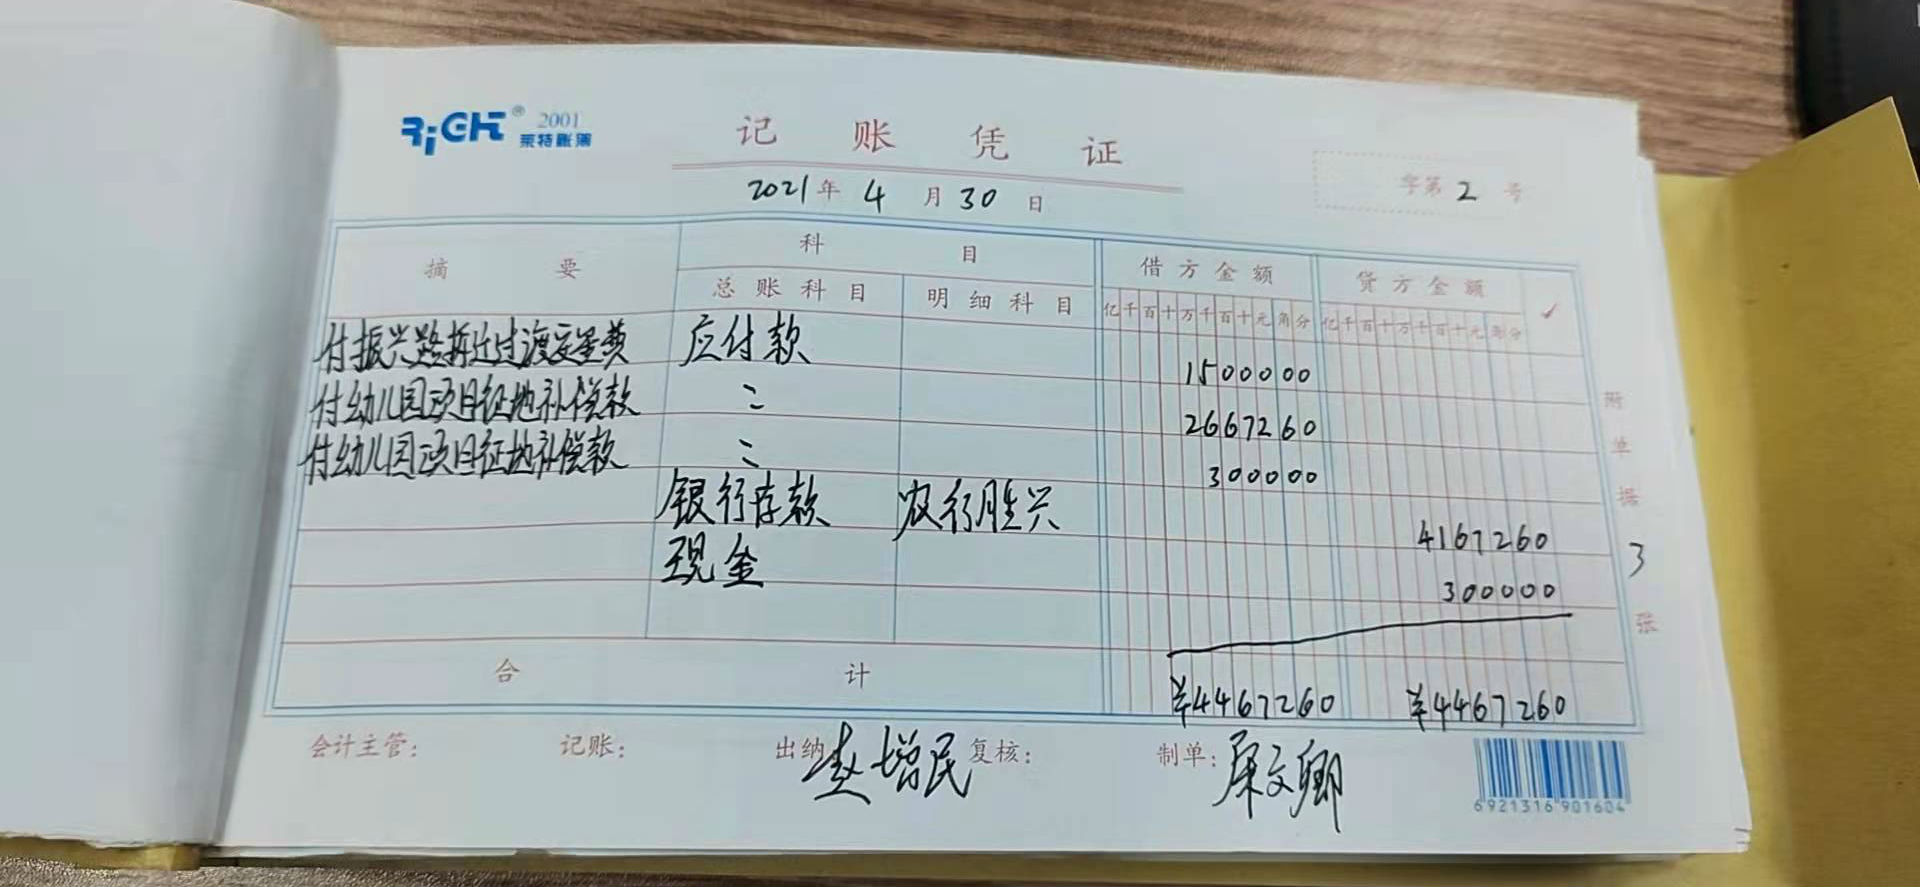 RiGHT® 2001
莱特账簿
记账凭证
2021年4月30日
字第2号
摘要 科目 借方金额 贷方金额 ✓
总账科目 明细科目 亿千百十万千百十元角分 亿千百十万千百十元角分
付振兴路拆迁过渡安置费 应付款 1500000
付幼儿园项目征地补偿款 〃 2667260
付幼儿园项目征地补偿款 〃 300000
银行存款 农行胜兴 4167260
现金 300000
合计 ¥4467260 ¥4467260
附单据3张
会计主管: 记账: 出纳 赵增民 复核: 制单: 文卿
6921316901604